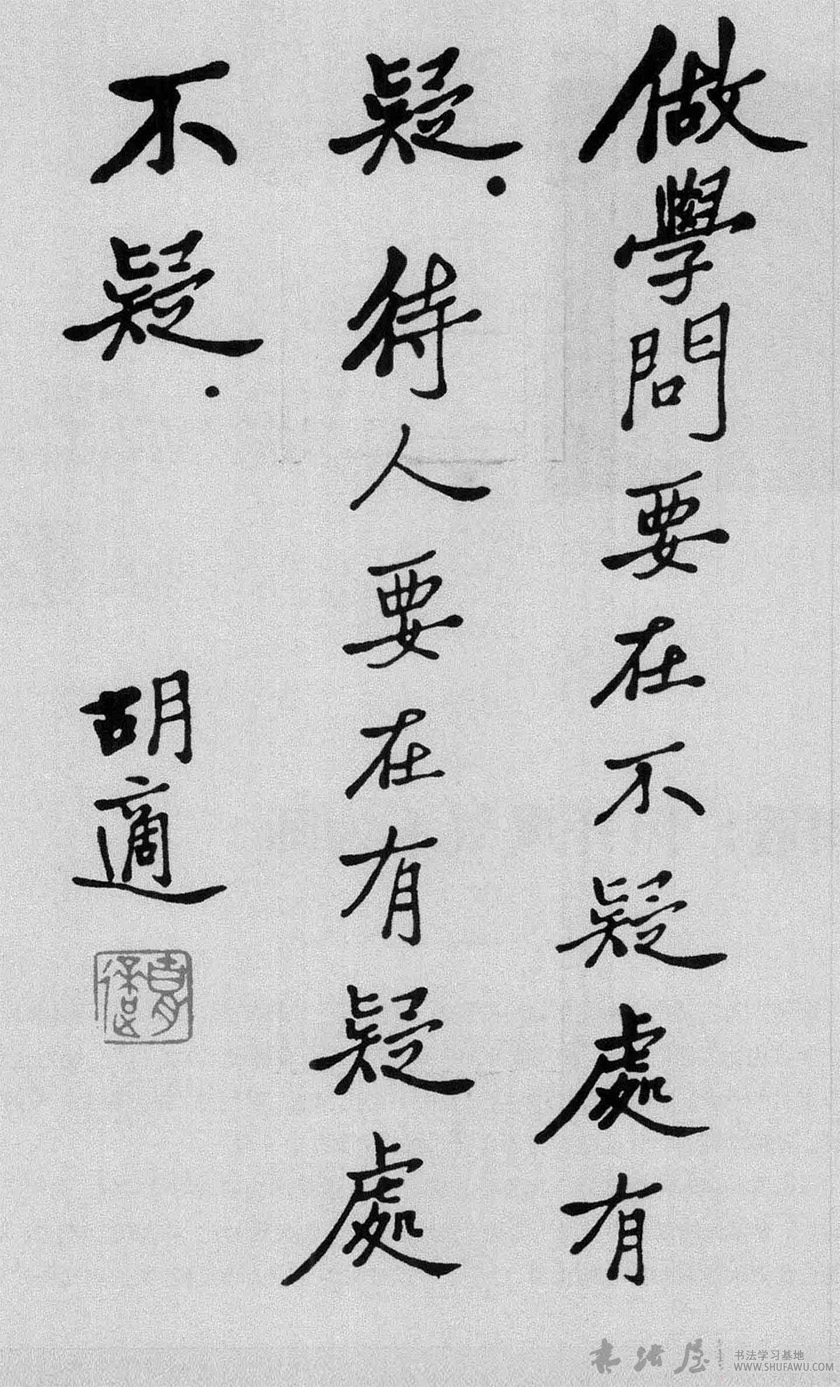 做學問要在不疑處有
疑．待人要在有疑處
不疑．
胡適
书法屋
书法学习基地
WWW.SHUFAWU.COM